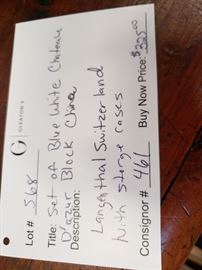 G
GLEATON'S
Lot # 568
Title: Set of Blue White Chateau
D'azur Block China
Description:
Langenthal Switzerland
With storge cases
Consignor # 461 Buy Now Price: $325.00